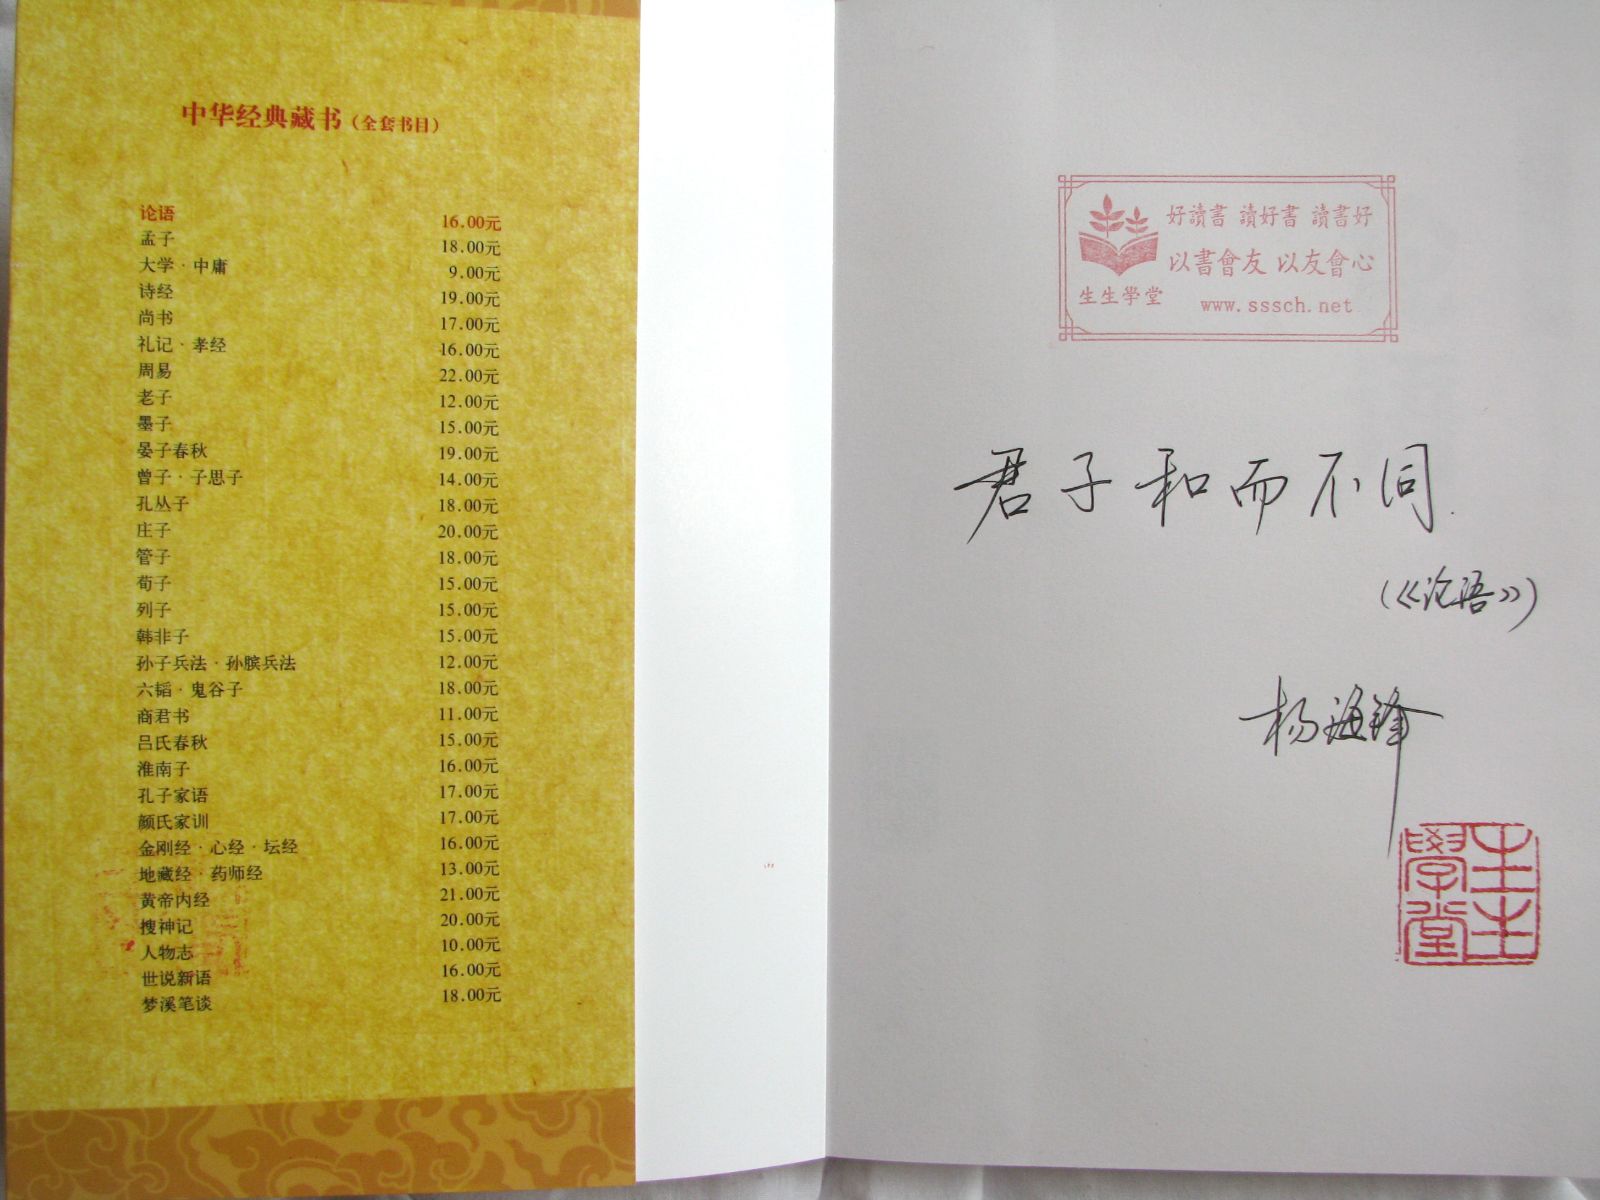 中华经典藏书（全套书目）
论语 16.00元
孟子 18.00元
大学·中庸 9.00元
诗经 19.00元
尚书 17.00元
礼记·孝经 16.00元
周易 22.00元
老子 12.00元
墨子 15.00元
晏子春秋 19.00元
曾子·子思子 14.00元
孔丛子 18.00元
庄子 20.00元
管子 18.00元
荀子 15.00元
列子 15.00元
韩非子 15.00元
孙子兵法·孙膑兵法 12.00元
六韬·鬼谷子 18.00元
商君书 11.00元
吕氏春秋 15.00元
淮南子 16.00元
孔子家语 17.00元
颜氏家训 17.00元
金刚经·心经·坛经 16.00元
地藏经·药师经 13.00元
黄帝内经 21.00元
搜神记 20.00元
人物志 10.00元
世说新语 16.00元
梦溪笔谈 18.00元
好讀書 讀好書 讀書好
以書會友 以友會心
生生學堂 www.sssch.net
君子和而不同.
(《论语》)
杨海锋
生生
學堂